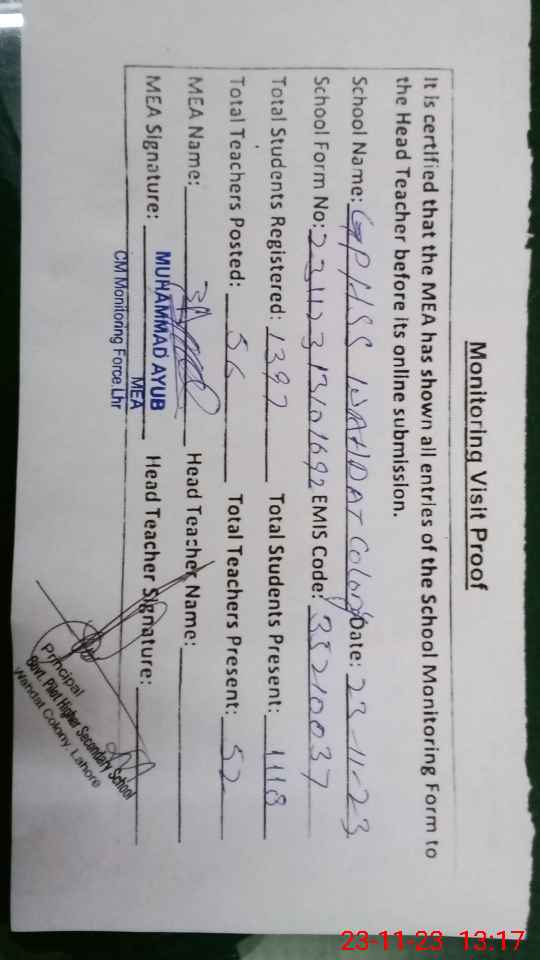 Monitoring Visit Proof
It is certified that the MEA has shown all entries of the School Monitoring Form to
the Head Teacher before its online submission.
School Name: GPHSS WAHDAT Colony Date: 23-11-23
School Form No: 23112313101692 EMIS Code: 35210037
Total Students Registered: 1397 Total Students Present: 1118
Total Teachers Posted: 56 Total Teachers Present: 52
MEA Name: Head Teacher Name:
MEA Signature: MUHAMMAD AYUB Head Teacher Signature:
MEA
CM Monitoring Force.Lhr
Principal
Govt. Pilot Higher Secondary School
Wahdat Colony, Lahore
23-11-23 13:17